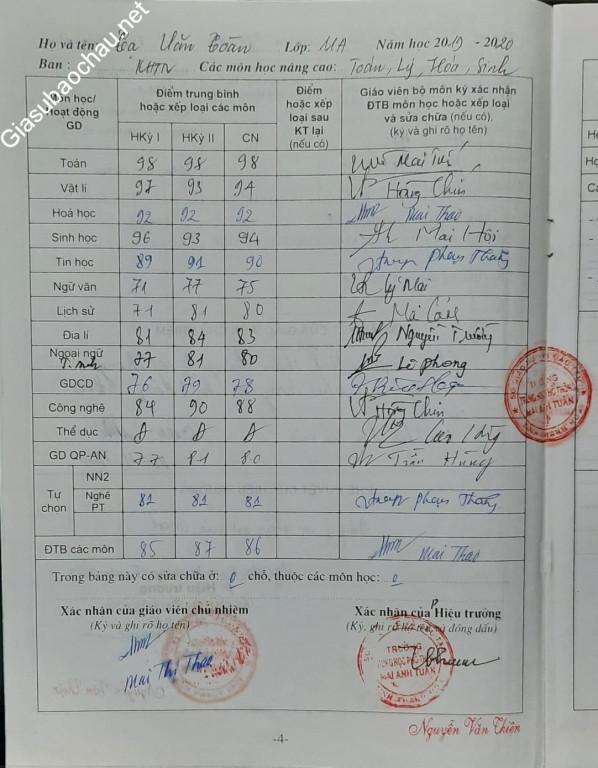 Giasubaochau.net
Họ và tên: Văn Toàn Lớp: 11A Năm học 2019 - 2020
Ban: KHTN Các môn học nâng cao: Toán, Lý, Hóa, Sinh
Môn học/ Hoạt động GD
Điểm trung bình hoặc xếp loại các môn
HKỳ I HKỳ II CN
Điểm hoặc xếp loại sau KT lại (nếu có)
Giáo viên bộ môn ký xác nhận ĐTB môn học hoặc xếp loại và sửa chữa (nếu có), (ký và ghi rõ họ tên)
Toán 98 98 98 Mai
Vật lí 97 93 94 Hồng Chín
Hoá học 92 92 92 Mai Thao
Sinh học 96 93 94 Mai Hội
Tin học 89 91 90 Phạm Thắng
Ngữ văn 71 77 75 Lý Mai
Lịch sử 71 81 80 Mai
Địa lí 81 84 83 Nguyễn
Ngoại ngữ 77 81 80 Lê Phong
T. Anh
GDCD 76 79 78
Công nghệ 84 90 88 Hồng Chín
Thể dục Đ Đ Đ
GD QP-AN 77 81 80 Trần Hùng
Tự chọn
NN2
Nghề PT 81 81 81 Phạm Thắng
ĐTB các môn 85 87 86 Mai Thao
Trong bảng này có sửa chữa ở: 0 chỗ, thuộc các môn học: 0
Xác nhận của giáo viên chủ nhiệm
(Ký và ghi rõ họ tên)
Mai Thị Thao
Xác nhận của P Hiệu trưởng
(Ký, ghi rõ họ tên và đóng dấu)
TRƯỜNG
TRUNG HỌC PHỔ THÔNG
MAI ANH TUẤN
Nguyễn Văn Thiện
-4-